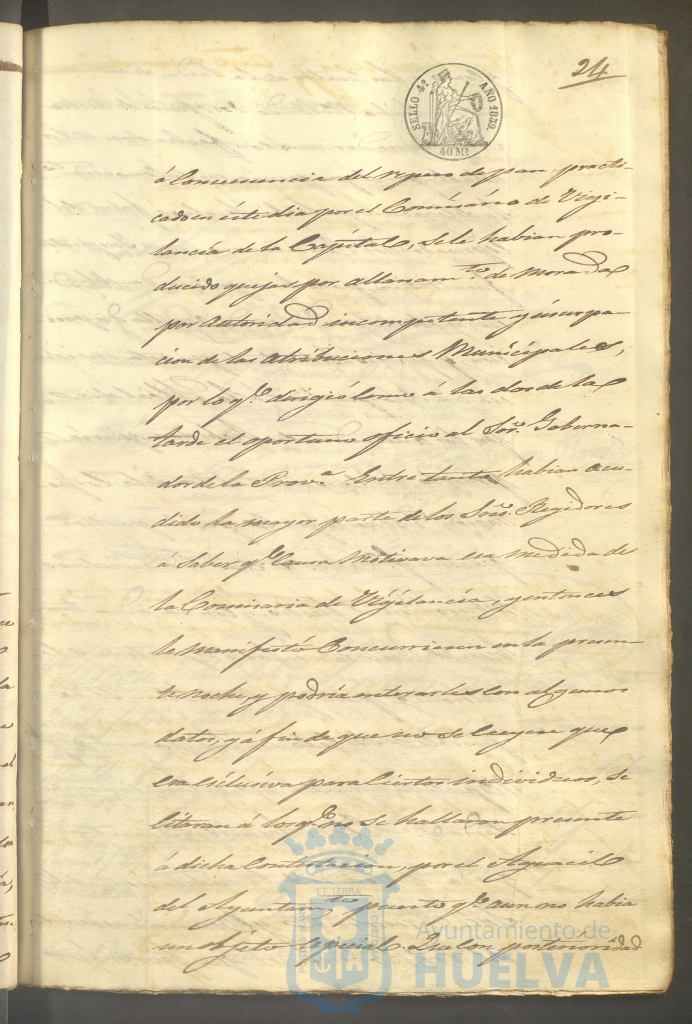 24
SELLO 4º AÑO 1859.
40 Ms
á Consecuencia del repeso de pan, practi-
cado en éste dia por el Comisário de Vigi-
lancia de la Capital, se le habian pro-
ducido quejas por allanamto. de Morada
por Autoridad incompetente y usurpa-
cion de las atribuciones Municipales,
por lo qe. dirigió como á las dos de la
tarde el oportuno oficio al Sor. Goberna-
dor de la Prova. Entre tanto, habian acu-
dido la mayor parte de los Sres. Regidores
á Saber qe. Causa Motivava esa medida de
la Comisaria de Vigilancia, y entonces
le manifestó Concurriesen en la presen-
te noche, y podria enterarles con algunos
datos, y á fin de que no se creyese que
era esclusiva para Ciertos individuos, se
Citaran á los qe. no se hallaron presente
á dicha Contestacion, por el Aguacil
del Ayuntamto. puesto qe. aun no habia
un objeto especial. Que con posterioridad
ET TERRÆ
Ayuntamiento de
HUELVA